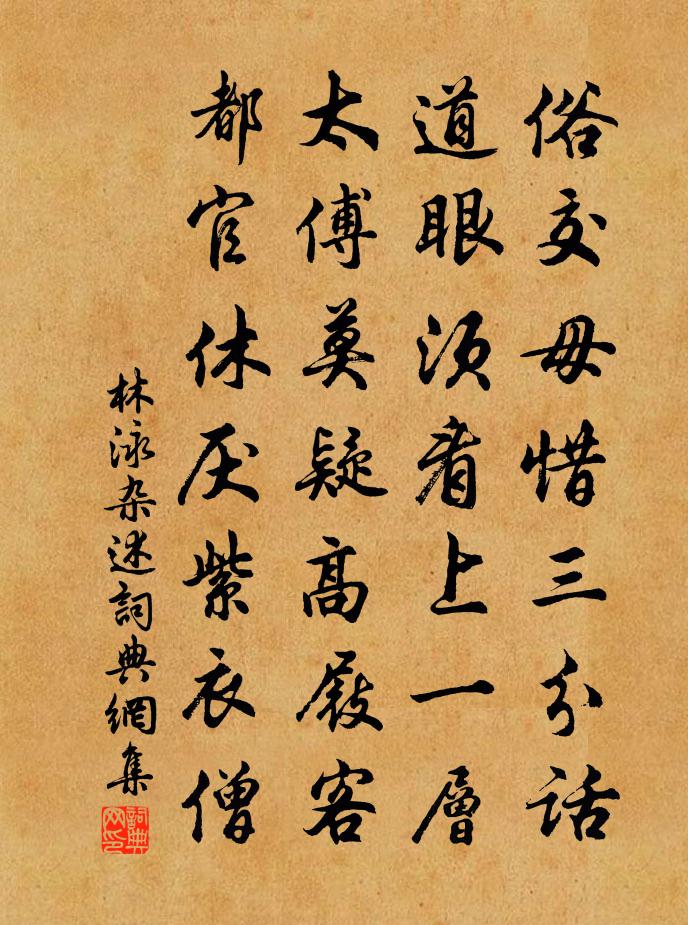 俗交毋惜三分話
道眼須看上一層
太傅莫疑高屐客
都官休厌紫衣僧
林泳杂述詞典網集
詞典网印